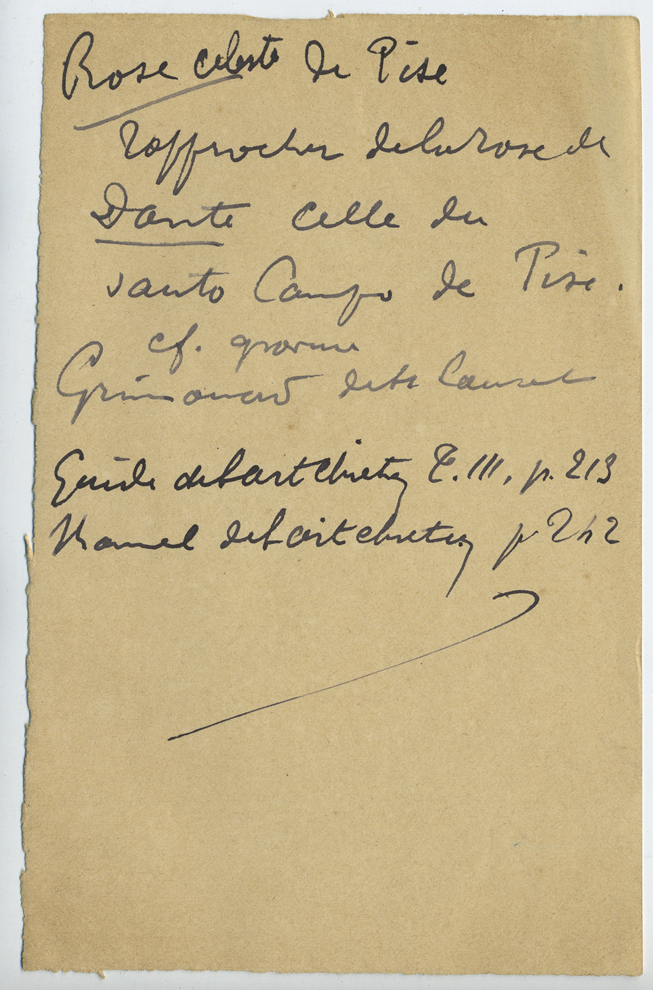 Rose celeste de Pise
rapprocher de la rose de
Dante celle du
santo Campo de Pise.
cf. gravure
Grimouard de St Laurent
Guide de l'art chretien T. III, p. 213
Manuel de l'art chretien p 242